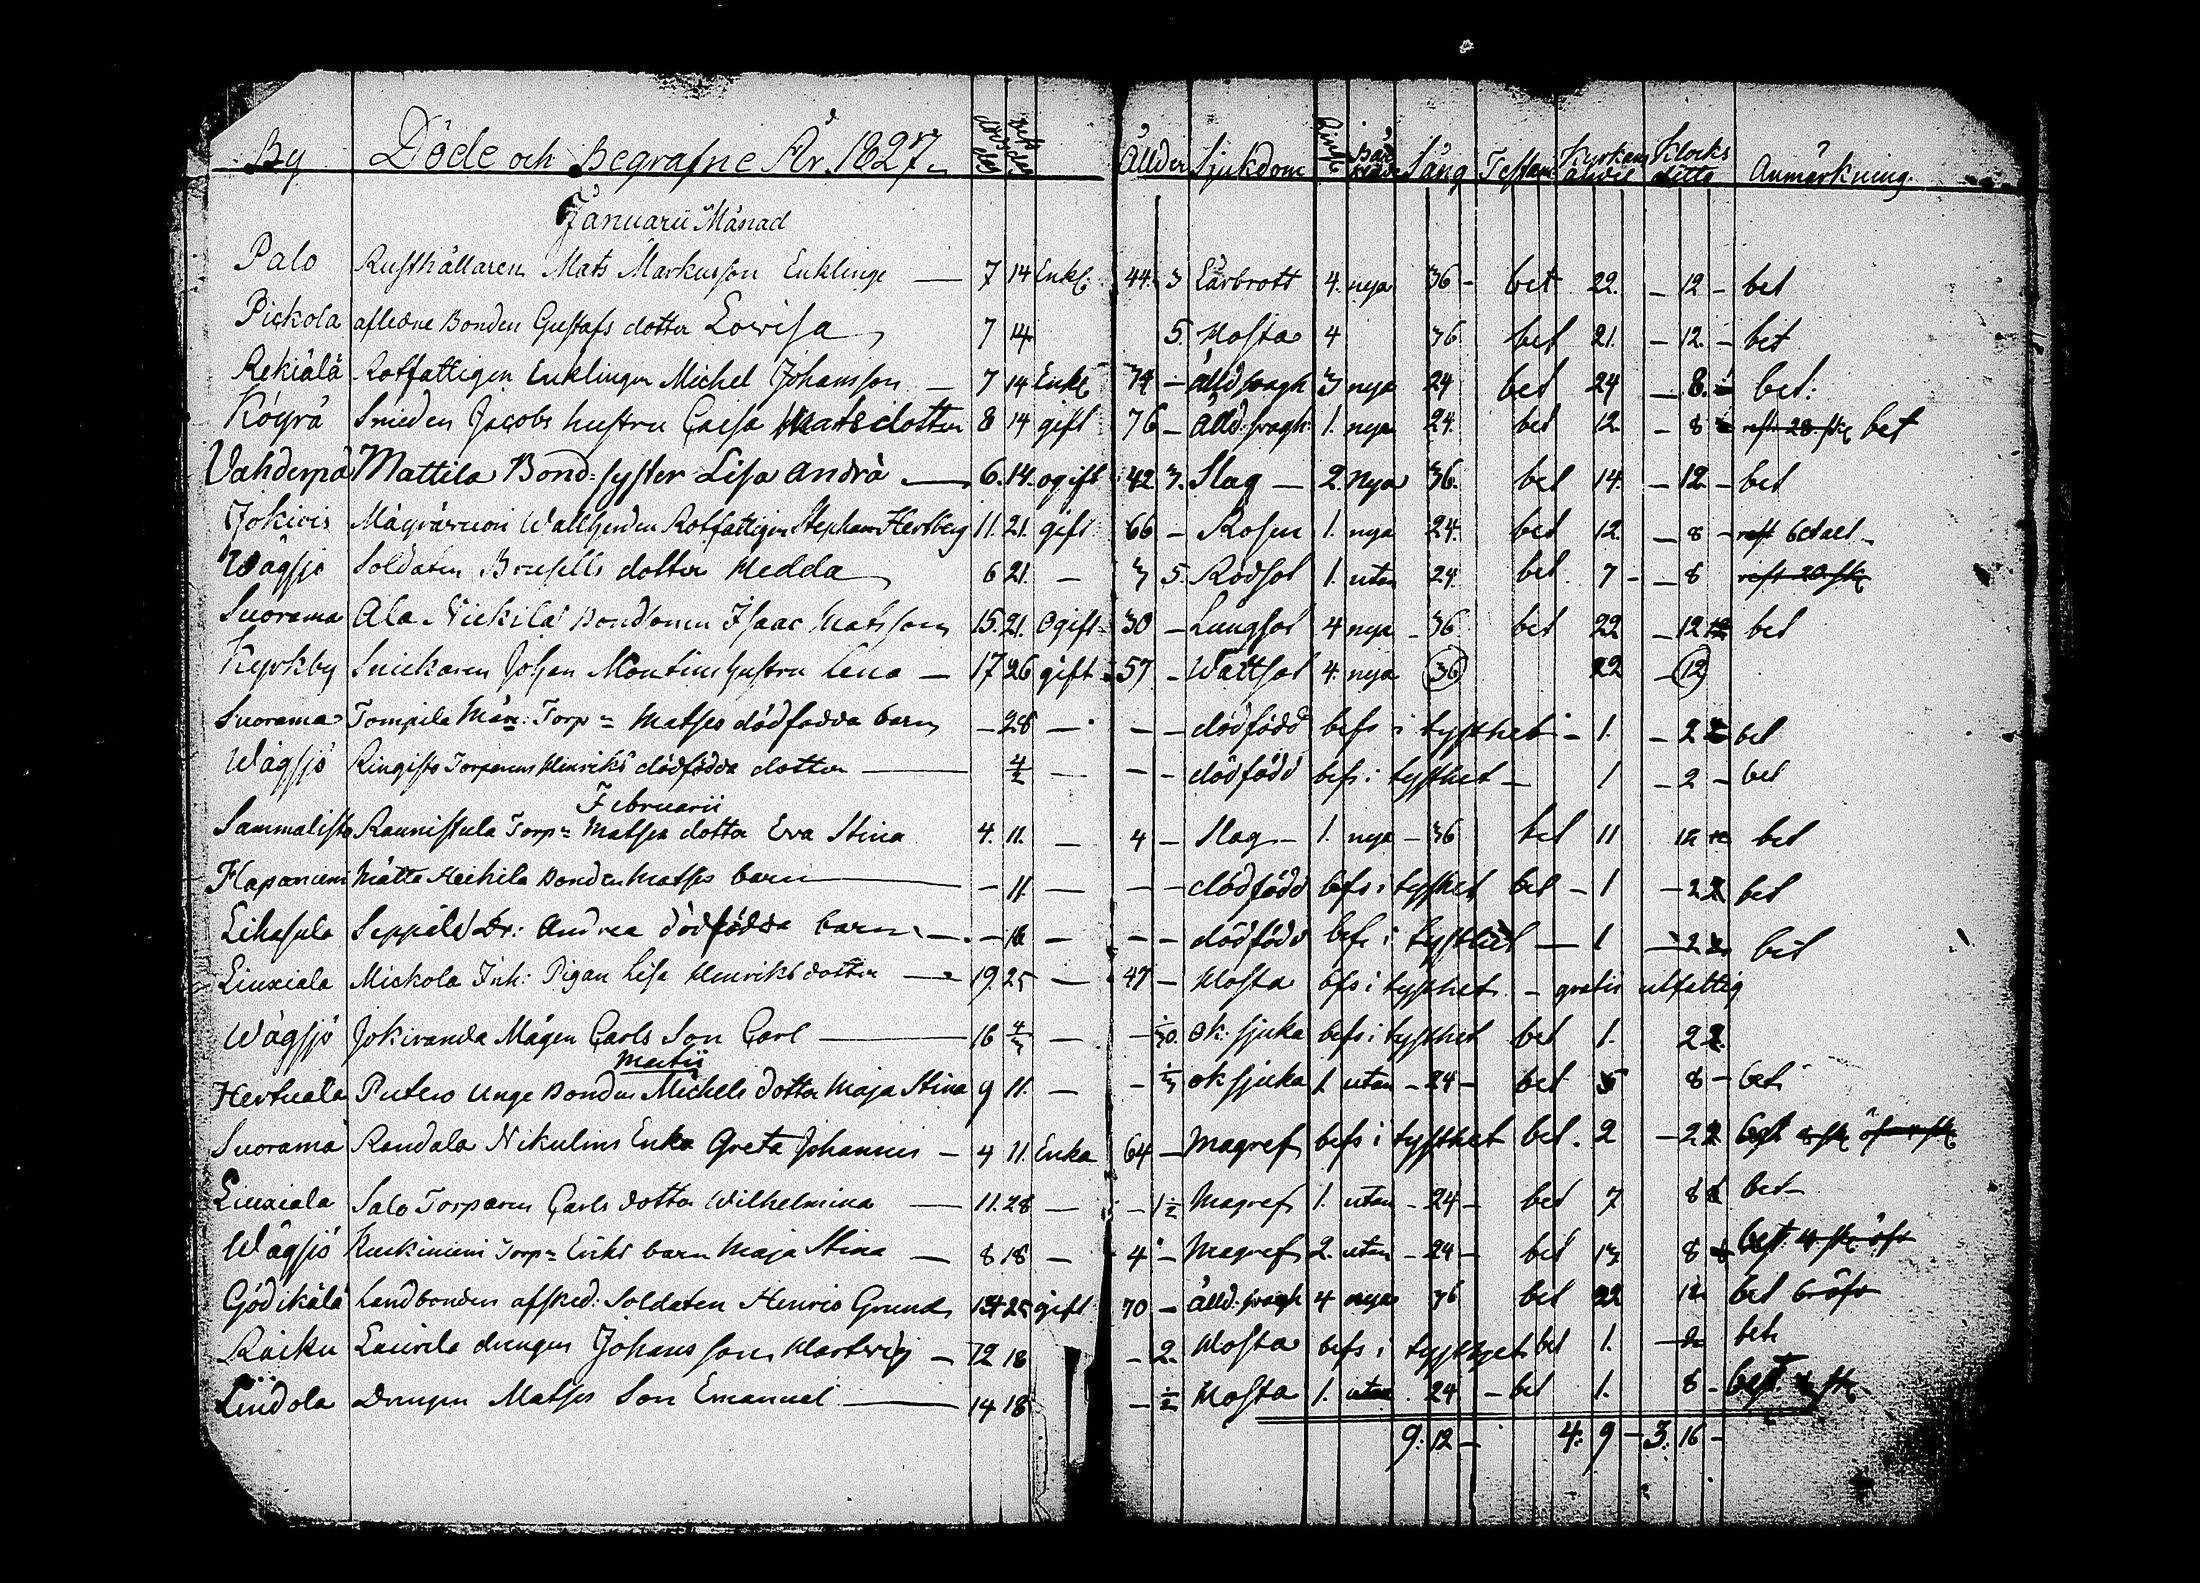 By Döde och Begrafne År. 1827. döds dag befs dag Ållder Sjukdom Ring Bår kläde Säng Testam Kyrkans andel Klock ditto Anmärkning
Januarii Månad
Palo Rusthållaren Mats Markusson Enklinge — 7 14 Enkl. 44. 3 Lårbrott 4. nya 36 - bet 22. - 12 - bet
Pickola afledne Bonden Gustafs dotter Lovisa 7 14 5. Hosta 4 36 bet 21. - 12. - bet
Rekiälä Rotfattigen Enklingen Michel Johansson — 7 14 Enkl 74 - ålld. 3 nya 24 bet 24 - 8. bet:
Köyrä Smeden Jacobs hustru Caisa Mats dotter 8 14 gift 76 - ålld. 1. nya 24. bet 12. - 8 rest 28 sk bet
Vahderpä Mattila Bond: syster Lisa Andrä — 6. 14. ogift 42. 3. Slag — 2. nya 36. bet 14. - 12 - bet
Jokivis Rotfattigen Stephan Hertberg 11. 21. gift 66 - Rosen 1. nya 24. bet 12. - 8 - rest betalt -
Wågsjö Soldaten Brusells dotter Hedda 6 21. - 3 5. Rödsot 1. utan 24. bet 7 - - 8 rest 20 sk
Suorama Ala Nickilä Bondsonen Isaac Matsson 15. 21. Ogift 30 - Lungsot 4 nya - 36 bet 22 - 12 12 bet
Kyrkby Snickaren Johan Montins hustru Lena — 17 26 gift 57 - Wattsot 4. nya 36 22 - 12
Suorama Tompila Torp= Matses dödfödda barn - 28 - - - dödfödd befs i tysthet - 1. - 2 2 bet
Wågsjö Ringists Torparens Henriks dödfödda dotter — 4/2 - - - dödfödd befs i tysthet - 1 - 2 - bet
Februarii
Sammalisto Raunistula Torp= Matses dotter Eva Stina 4. 11. - 4 - Slag - 1. nya - 36 bet 11 12 12 bet
Hapaniemi Mätta Heikilä Bonden Matses barn — - 11. - - - dödfödd befs i tysthet bet - 1 - 2 2 bet
Lihasula Seppälä Dr: Andrea dödfödda barn - - 18 - - - dödfödd befs i tysthet — 1 - 2 2 bet
Liuxiala Mickola Inh: Pigan Lisa Henriks dotter — 19. 25 - 47 - Hosta befs i tysthet - gratis utfattig
Wågsjö Jokiranda Mågen Carls Son Carl — 16 4/3 - - 30. ok: sjuka befs i tysthet bet 1. 2 2
Martii
Hertuala Putus Unge Bonden Michels dotter Maja Stina 9 11. - - ok sjuka 1. utan - 24 - bet 5 8 - bet
Suorama Randala Nikulins Enka Greta Johannis - 4 11. Enka 64 - Magref befs i tysthet bet. 2 - 2 2
Liuxiala Salo Torparen Carls dotter Wilhelmina — 11. 28 - - 1½ Magref 1. utan - 24 - bet 7 8 8 bet -
Wågsjö Kuckiniemi Torp= Eriks barn Maja Stina — 8 18 - 4 - Magref 2. utan - 24 - bet 13 8 8
Gödikälä Landbonden afsked: Soldaten Henric Grund 25 gift 70 - ålld. 4 nya 36 bet 22 12 bet 6 öfv
Raiku Laurila drengen Johans son Hartvig — 12 18 - 2. Hosta befs i tysthet bet 1. - 2 bet
Liudola Drengen Matses Son Emanuel — 14 18 - ½ Hosta 1. utan 24 - bet 1. 8 -
9: 12 - 4: 9 - 3: 16 -